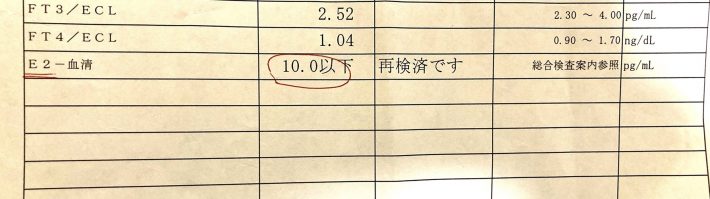 FT3/ECL 2.52 2.30 ～ 4.00 pg/mL
FT4/ECL 1.04 0.90 ～ 1.70 ng/dL
E2－血清 10.0以下 再検済です 総合検査案内参照 pg/mL